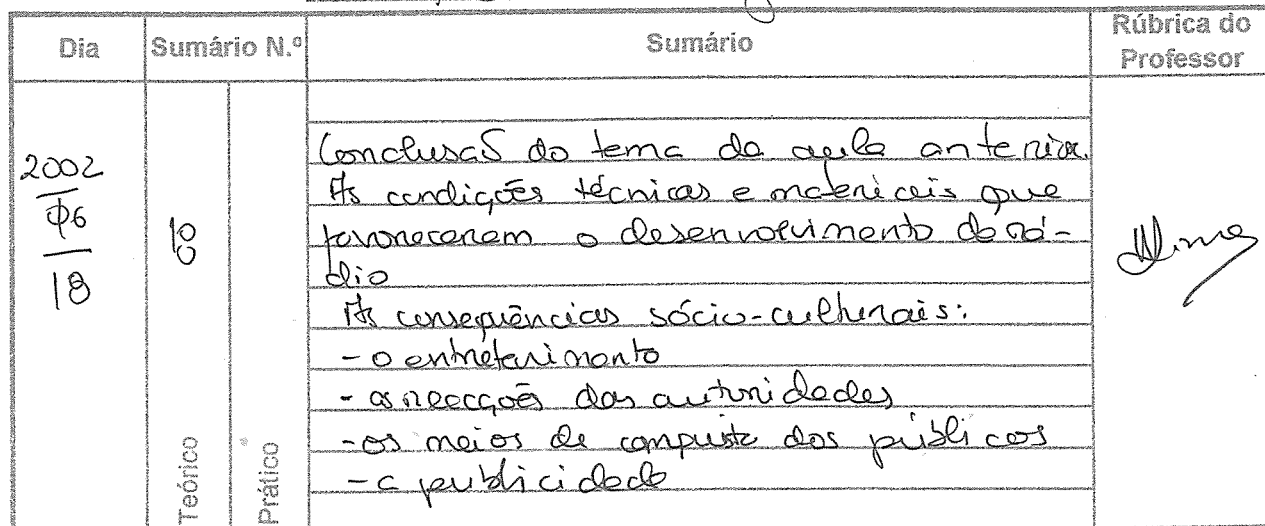 Dia
Sumário N.º
Sumário
Rúbrica do
Professor
2002
06
18
Conclusão do tema da aula anterior.
As condições técnicas e materiais que
favoreceram o desenvolvimento da rá-
dio
As consequências sócio-culturais:
- o entretenimento
- as reacções das autoridades
- os meios de conquista dos públicos
- a publicidade
Teórico
Prático